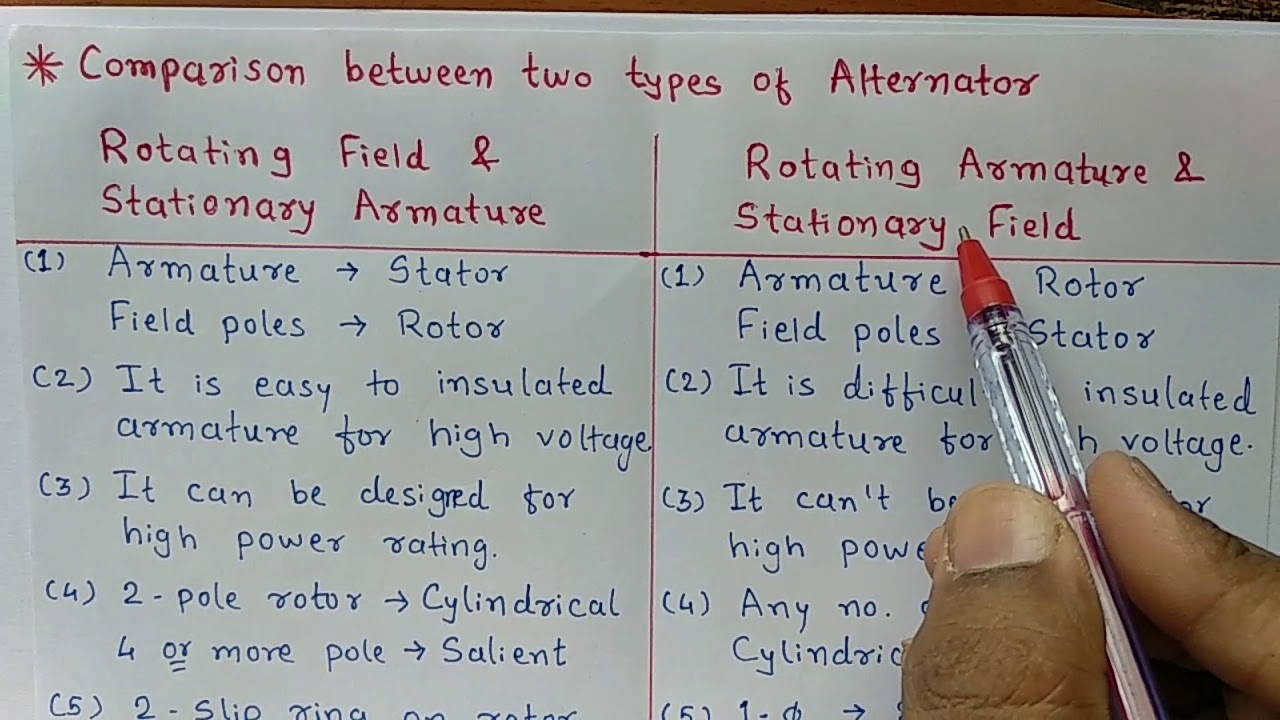 * Comparison between two types of Alternator
Rotating Field &
Stationary Armature
(1) Armature → Stator
Field poles → Rotor
(2) It is easy to insulated
armature for high voltage
(3) It can be designed for
high power rating.
(4) 2-pole rotor → Cylindrical
4 or more pole → Salient
(5) 2-Slip ring on rotor
Rotating Armature &
Stationary Field
(1) Armature Rotor
Field poles Stator
(2) It is insulated
armature for voltage.
(3) It can't
high
(4) Any no.
(5) 1-ϕ →